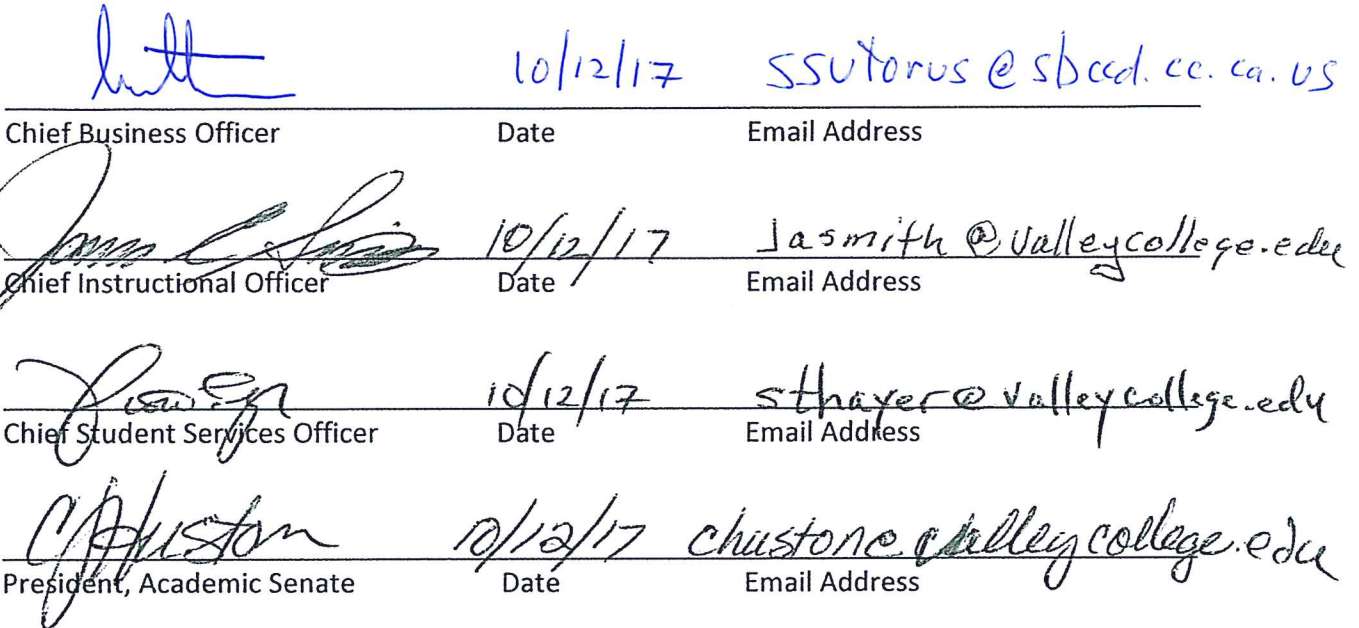 10/12/17 ssutorus@sbccd.cc.ca.us
Chief Business Officer Date Email Address
10/12/17 Jasmith@valleycollege.edu
Chief Instructional Officer Date Email Address
10/12/17 sthayer@valleycollege.edu
Chief Student Services Officer Date Email Address
CJHuston 10/12/17 chuston@valleycollege.edu
President, Academic Senate Date Email Address